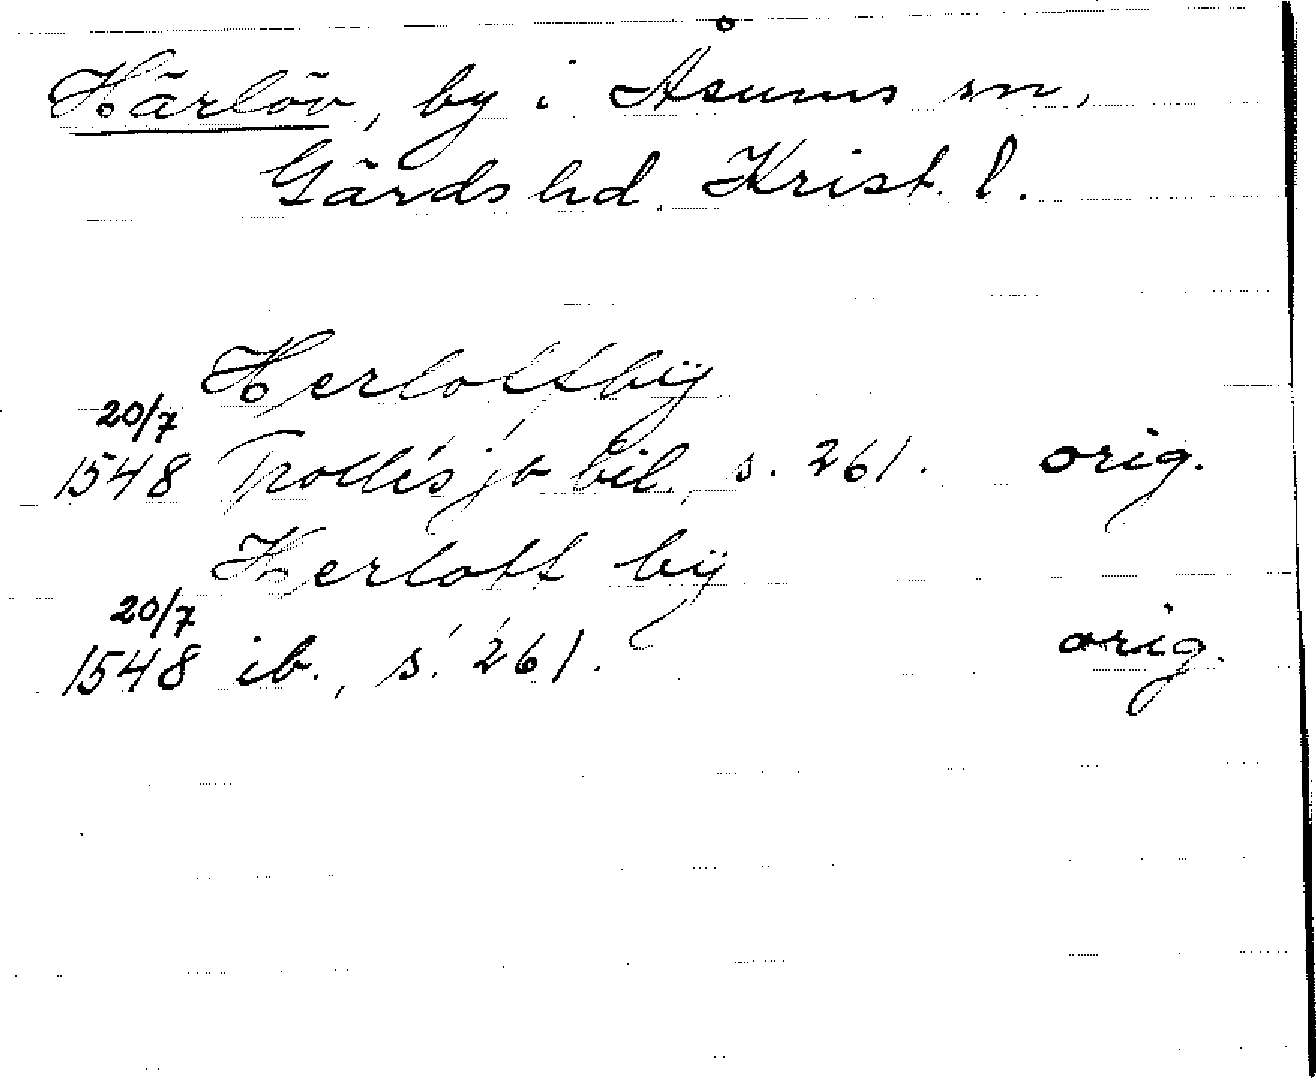 Härlöv, by i Åsums sn,
Gärds hd. Krist. l.
Herloffbÿ
20/7
1548 Trolles jb bil., s. 261. orig.
Herloff bÿ
20/7
1548 ib., s. 261. orig.